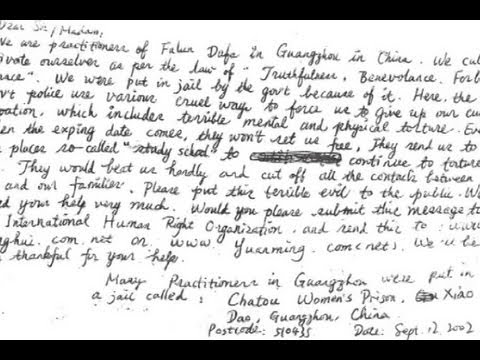 Dear Sir/Madam,
We are practitioners of Falun Dafa in Guangzhou in China. We cul
ivate ourselves as per the law of "Truthfulness, Benevolance. Forb
rance". We were put in jail by the gov't because of it. Here, the
v't police use various cruel ways to force us to give up our cu
vation, which includes terrible mental and physical torture. Ev
en the exping date comes, they won't set us free, They send us to
r places so-called "study school" to continue to torture
They would beat us hardly and cut off all the contacts between
and our families. Please put this terrible evil to the public. W
d your help very much. Would you please submit this message to
International Human Right Organization, and send this to: www.
nghui.com.net or www. Yuanming. com(net). We'll be
thankful for your help.
Many Practitioners in Guangzhou were put in
a jail called: Chatou Women's Prison, Xiao
Dao, Guangzhou, China.
Postcode: 510435 Date: Sept. 12. 2002